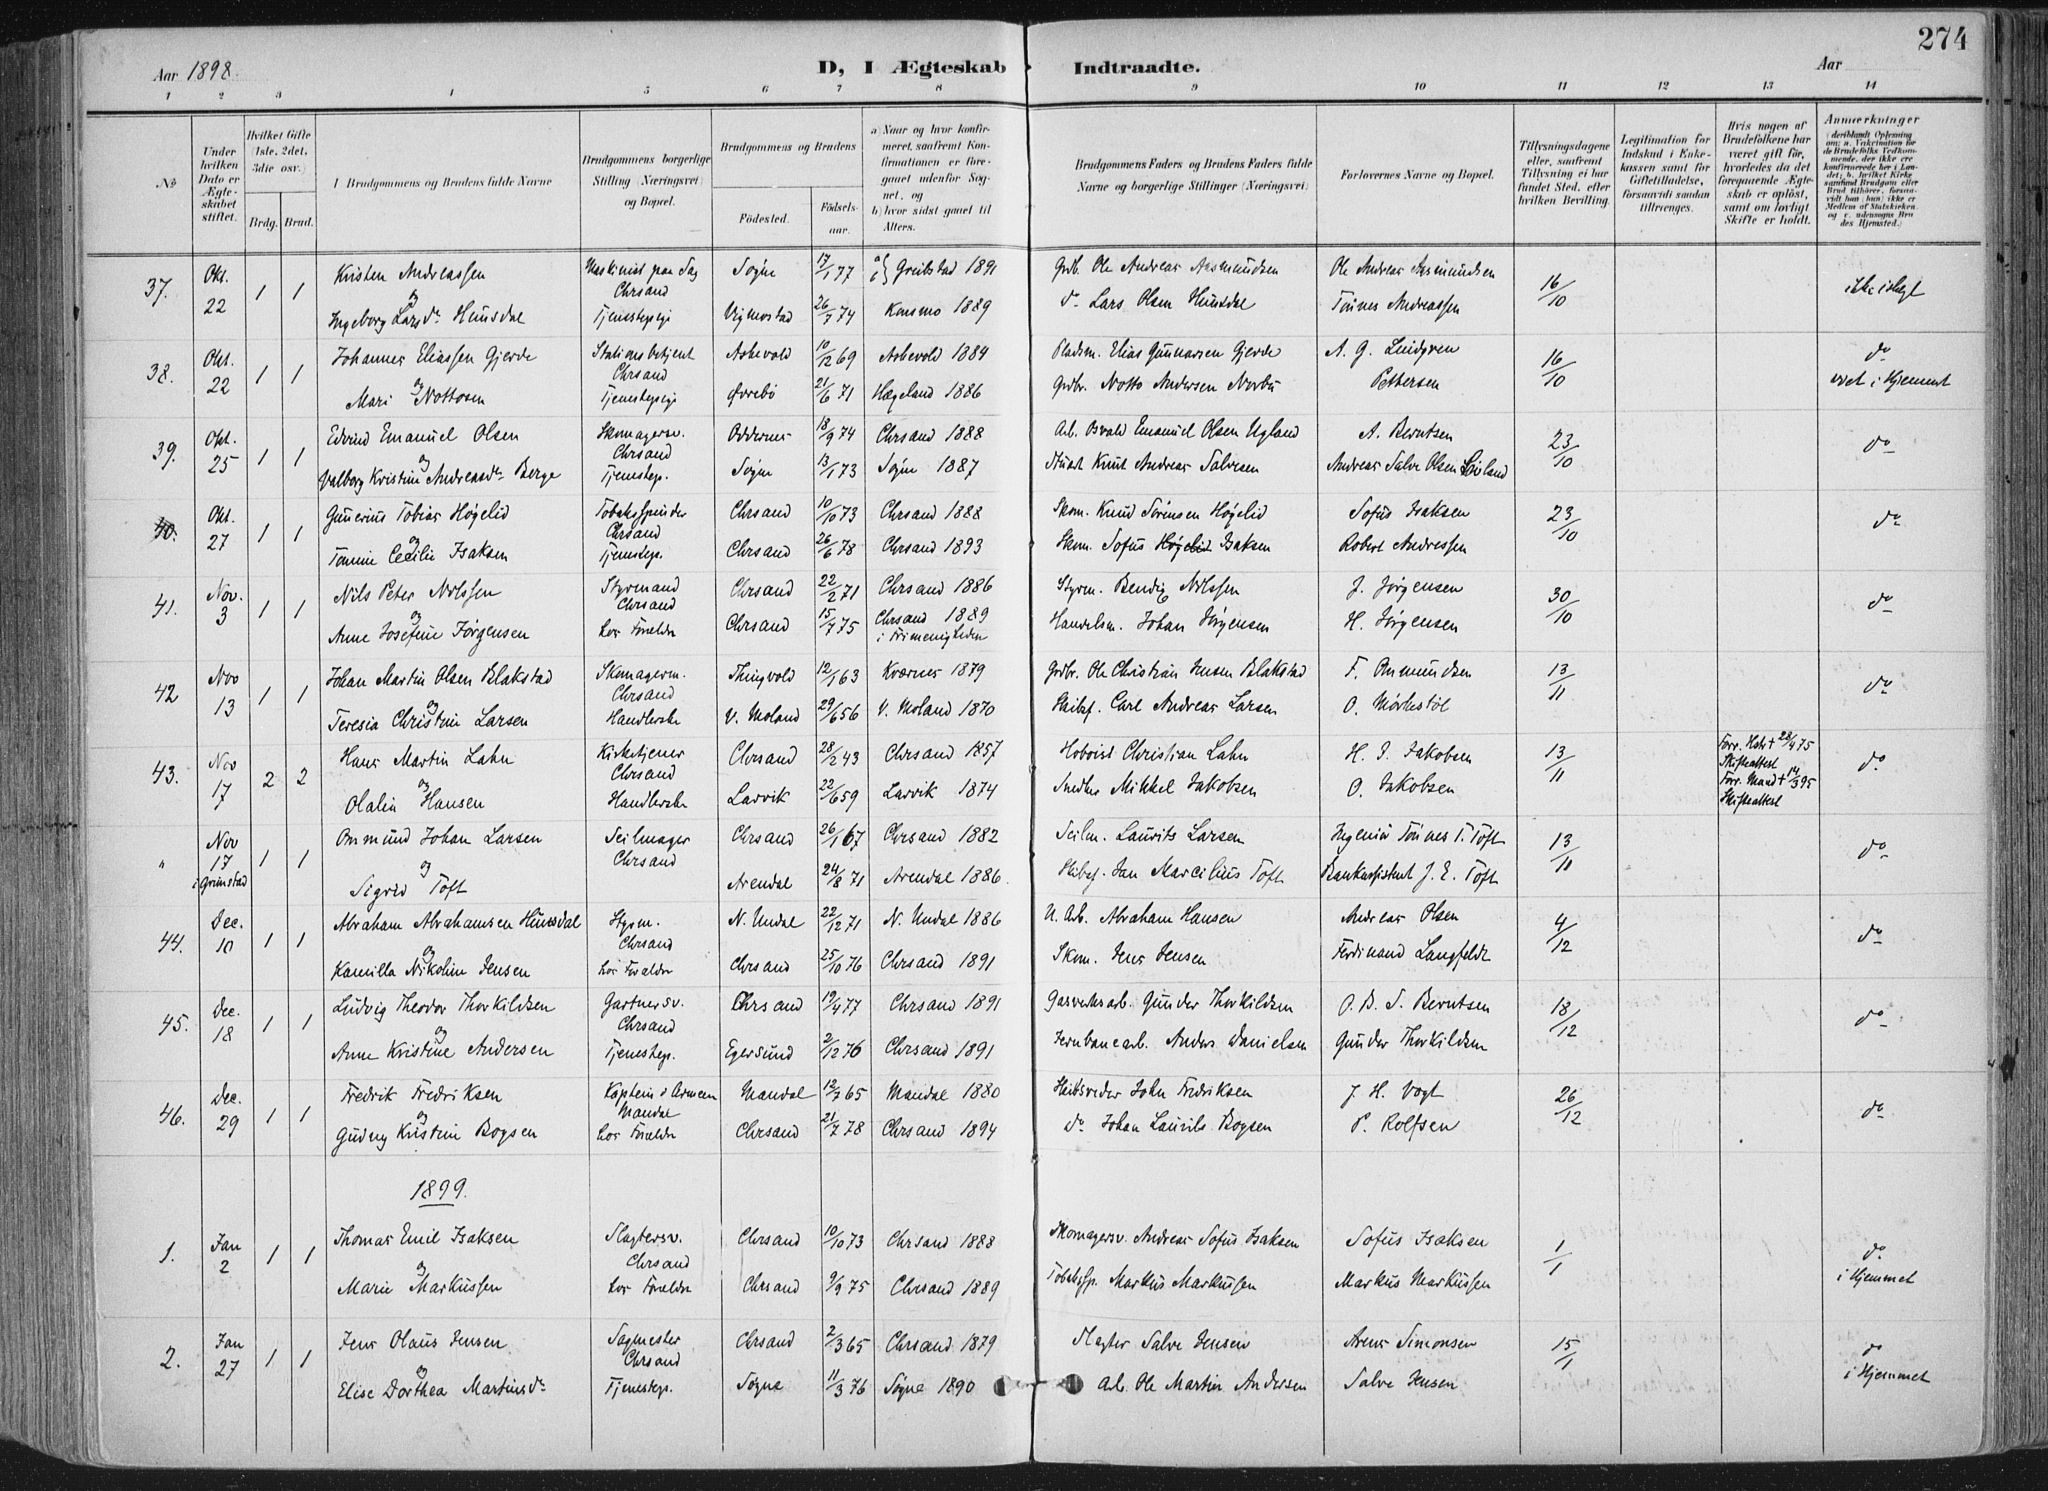 274
Aar 1898.
D, I Ægteskab Indtraadte.
Aar
1 2 3 4 5 6 7 8 9 10 11 12 13 14
No
Under hvilken Dato er Ægteskabet stiftet.
Hvilket Gifte (1ste, 2det, 3die osv.)
Brdg. Brud.
I Brudgommens og Brudens fulde Navne
Brudgommens borgerlige Stilling (Næringsvei) og Bopæl.
Brudgommens og Brudens
Fødested. Fødselsaar.
a) Naar og hvor konfirmeret, saafremt Konfirmationen er foregaaet udenfor Sognet, og
b) hvor sidst gaaet til Alters.
Brudgommens Faders og Brudens Faders fulde Navne og borgerlige Stillinger (Næringsvei)
Forlovernes Navne og Bopæl.
Tillysningsdagene eller, saafremt Tillysning ei har fundet Sted, efter hvilken Bevilling.
Legitimation for Indskud i Enkekassen samt for Giftetilladelse, forsaavidt saadan tiltrænges.
Hvis nogen af Brudefolkene har været gift før, hvorledes da det foregaaende Ægteskab er opløst, samt om lovligt Skifte er holdt.
Anmærkninger (deriblandt Oplysning om: a. Vaksination for de Brudefolks Vedkommende, der ikke ere konfirmerede her i Landet; b. hvilket Kirkesamfund Brudgom eller Brud tilhører, forsaavidt han (hun) ikke er Medlem af Statskirken, og c. udensogns Brudes Hjemsted.)
37. Okt. 22 1 1 Kristen Andreassen Maskinist paa Sag Chrsand Søgne 17/1 77 a) i) Greibstad 1891 Grdb. Ole Andreas Aasmundsen Ole Andreas Aasmundsen 16/10 ikke i slægt
og Ingeborg Larsda Hunsdal Tjenestepige Vigmostad 26/7 74 Konsmo 1889 do Lars Olsen Hunsdal Tønnes Andreassen
38. Okt. 22 1 1 Johannes Eliassen Gjerde Stationsbetjent Chrsand Askevold 10/12 69 Askevold 1884 Pladsm. Elias Gunnarsen Gjerde A. G. Lindgren 16/10 do
og Mari Nottosen Tjenestepige Øvrebø 21/6 71 Hægeland 1886 Grdbr. Notto Andersen Pettersen viet i Hjemmet
39. Okt. 25 1 1 Edvind Emanuel Olsen Skomagersv. Chrsand Oddernes 18/9 74 Chrsand 1888 Arb. Osvald Emanuel Olsen Ugland A. Berntsen 23/10 do
og Valborg Kristine Andreasda Berge Tjenestep. Søgne 13/1 73 Søgne 1887 Knut Andreas Salvesen Andreas Salve Olsen
40. Okt. 27 1 1 Gunerius Tobias Høgelid Tobaksspinder Chrsand Chrsand 10/10 73 Chrsand 1888 Skom. Knud Sørensen Høgelid Sofus Isaksen 23/10 do
og Tomine Cecilie Isaksen Tjenestep. Chrsand 26/6 78 Chrsand 1893 Skom. Sofus Høgelid Isaksen Robert Andressen
41. Nov. 3 1 1 Nils Peter Nilssen Styrmand Chrsand Chrsand 22/2 71 Chrsand 1886 Styrm. Bendig Nilssen J. Jørgensen 30/10 do
og Anne Josefine Jørgensen hos Forældre Chrsand 15/7 75 Chrsand 1889 i Frimenigheden Handelsm. Johan Jørgensen H. Jørgensen
42 Nov 13 1 1 Johan Martin Olsen Blakstad Skomagerm. Chrsand Thingvold 12/1 63 Kværnes 1879 Grdbr. Ole Christian Jensen Blakstad F. Ommundsen 13/11 do
og Teresia Christine Larsen Handlerske V. Moland 29/6 56 V. Moland 1870 Skibsf. Carl Andreas Larsen O. Mørkestøl
43. Nov 17 2 2 Hans Martin Lahn Kirketjener Chrsand Chrsand 28/2 43 Chrsand 1857 Hoboist Christian Lahn H. J. Jakobsen 13/11 Forr. Hstr + 28/4 75 Skifteattest do
og Olalia Hansen Handlerske Larvik 22/6 59 Larvik 1874 Mikkel Jakobsen O. Jakobsen Forr. Mand + 14/3 95 Skifteattest
" Nov 17 i Grimstad 1 1 Ommund Johan Larsen Seilmager Chrsand Chrsand 26/1 67 Chrsand 1882 Seilm. Laurits Larsen Ingeniør Tønnes T. Toft 13/11 do
og Sigrid Toft Arendal 24/8 71 Arendal 1886. Skibsf. Jan Marcilius Toft Bankassistent J. E. Toft
44. Dec. 10 1 1 Abraham Abrahamsen Hunsdal Styrm. Chrsand N. Undal 22/12 71 N. Undal 1886 U. Arb. Abraham Hansen Andreas Olsen 4/12 do
og Kamilla Nikoline Jensen hos Forældre Chrsand 25/10 76 Chrsand 1891 Skom. Jens Jensen Ferdinand Langfeldt
45. Dec. 18 1 1 Ludvig Theodor Thorkildsen Gartnersv. Chrsand Chrsand 19/4 77 Chrsand 1891 Gasverksarb. Gunder Thorkildsen O. B. S. Berntsen 18/12 do
og Anne Kristine Andersen Tjenestep. Egersund 2/12 76 Chrsand 1891 Jernbanearb. Anders Danielsen Gunder Thorkildsen
46. Dec. 29 1 1 Fredrik Fredriksen Kaptein i Armeen Mandal Mandal 12/7 65 Mandal 1880 Skibsreder John Fredriksen J. H. Vogt 26/12 do
og Gudny Kristine Bogsen hos Forældre Chrsand 21/7 78 Chrsand 1894 do Johan Laurits Bogsen P. Rolfsen
1899.
1. Jan 2 1 1 Thomas Emil Isaksen Slagtersv. Chrsand Chrsand 10/10 73 Chrsand 1888 Skomagersv. Andreas Sofus Isaksen Sofus Isaksen 1/1 do
og Marie Markussen hos Forældre Chrsand 9/9 75 Chrsand 1889 Tobakssp. Markus Markussen Markus Markussen i Hjemmet
2. Jan 27 1 1 Jens Olaus Jensen Sagmester Chrsand Chrsand 2/3 65 Chrsand 1879 Slagter Salve Jensen Arens Simonsen 15/1 do
og Elise Dorthea Martinsda Tjenestep. Søgne 11/3 76 Søgne 1890 Arb. Ole Martin Andersen Salve Jensen i Hjemmet